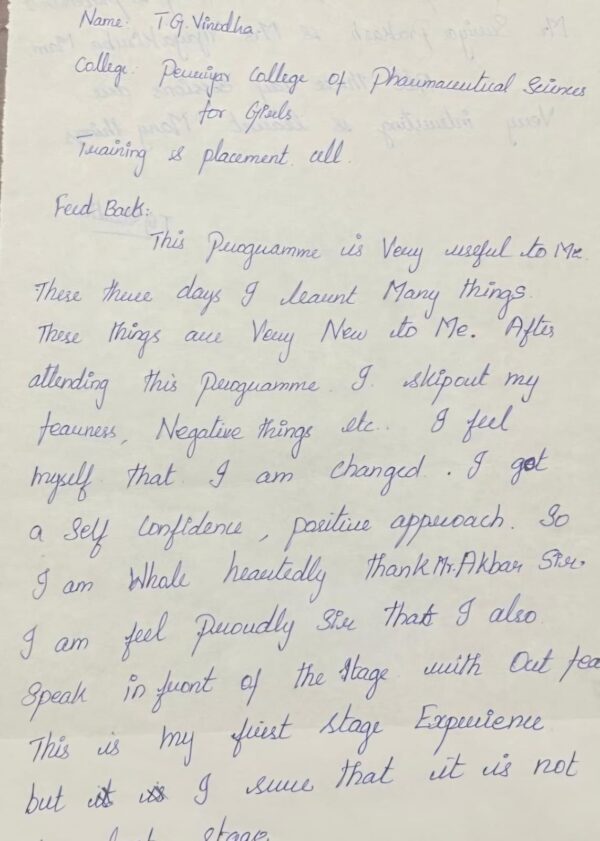 Name: T.G. Vinodha
College: Periyar College of Pharmaceutical Sciences
for Girls
Training & placement cell.
Feed Back:
This Programme is Very useful to Me.
These three days I learnt Many things.
These things are Very New to Me. After
attending this programme I skipout my
fearness, Negative things etc.. I feel
myself that I am changed. I got
a self confidence, positive approach. So
I am Whole heartedly thank Mr. Akbar Sir.
I am feel Proudly Sir that I also
Speak in front of the stage with Out fea
This is my first stage Experience
but I sure that it is not
stage